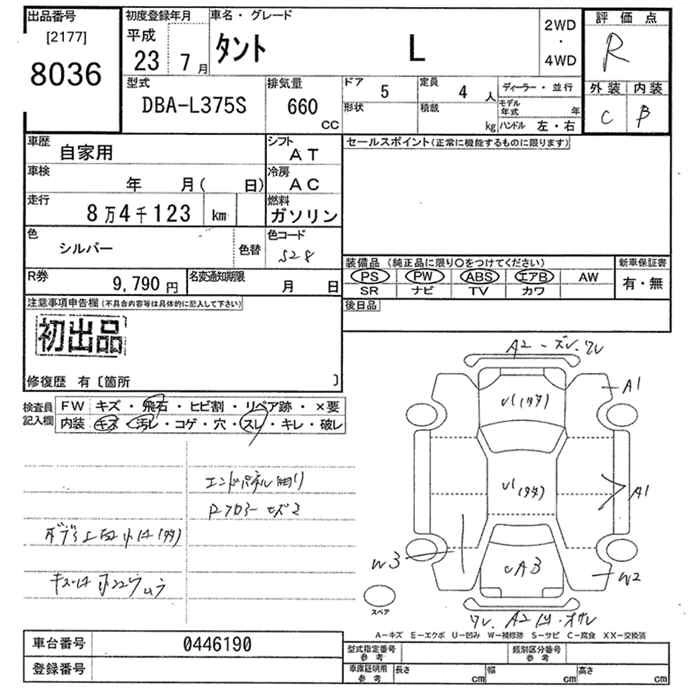 出品番号
[2177]
8036
初度登録年月
平成
23 7月
車名・グレード
タント L
2WD
・
4WD
評価点
R
外装 内装
C B
型式
DBA-L375S
排気量
660
CC
ドア 5
定員 4 人
形状
積載 kg
ディーラー・並行
モデル年式 年
ハンドル 左・右
車歴
自家用
シフト
AT
セールスポイント(正常に機能するものに限ります)
車検
年 月( 日)
冷房
AC
走行
8万4千123 km
燃料
ガソリン
色
シルバー
色替
色コード
S28
装備品 (純正品に限り○をつけてください)
PS PW ABS エアB AW
SR ナビ TV カワ
新車保証書
有・無
R券
9,790 円
名変通知期限
月 日
後日品
注意事項申告欄(不具合内容等は具体的に記入して下さい)
初出品
修復歴 有〔箇所 〕
検査員記入欄
FW キズ・飛石・ヒビ割・リペア跡・×要
内装 キズ・汚レ・コゲ・穴・スレ・キレ・破レ
エンドパネル曲り
A2-ズレ.ワレ
A1
A1
W3
W2
スペア
A-キズ E-エクボ U-凹み W-補修跡 S-サビ C-腐食 XX-交換済
車台番号 0446190
登録番号
型式指定番号参考
類別区分番号参考
車庫証明用参考 長さ cm 幅 cm 高さ cm